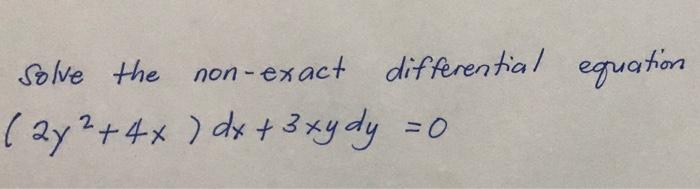 Solve the non-exact differential equation
(2y²+4x) dx + 3xy dy = 0